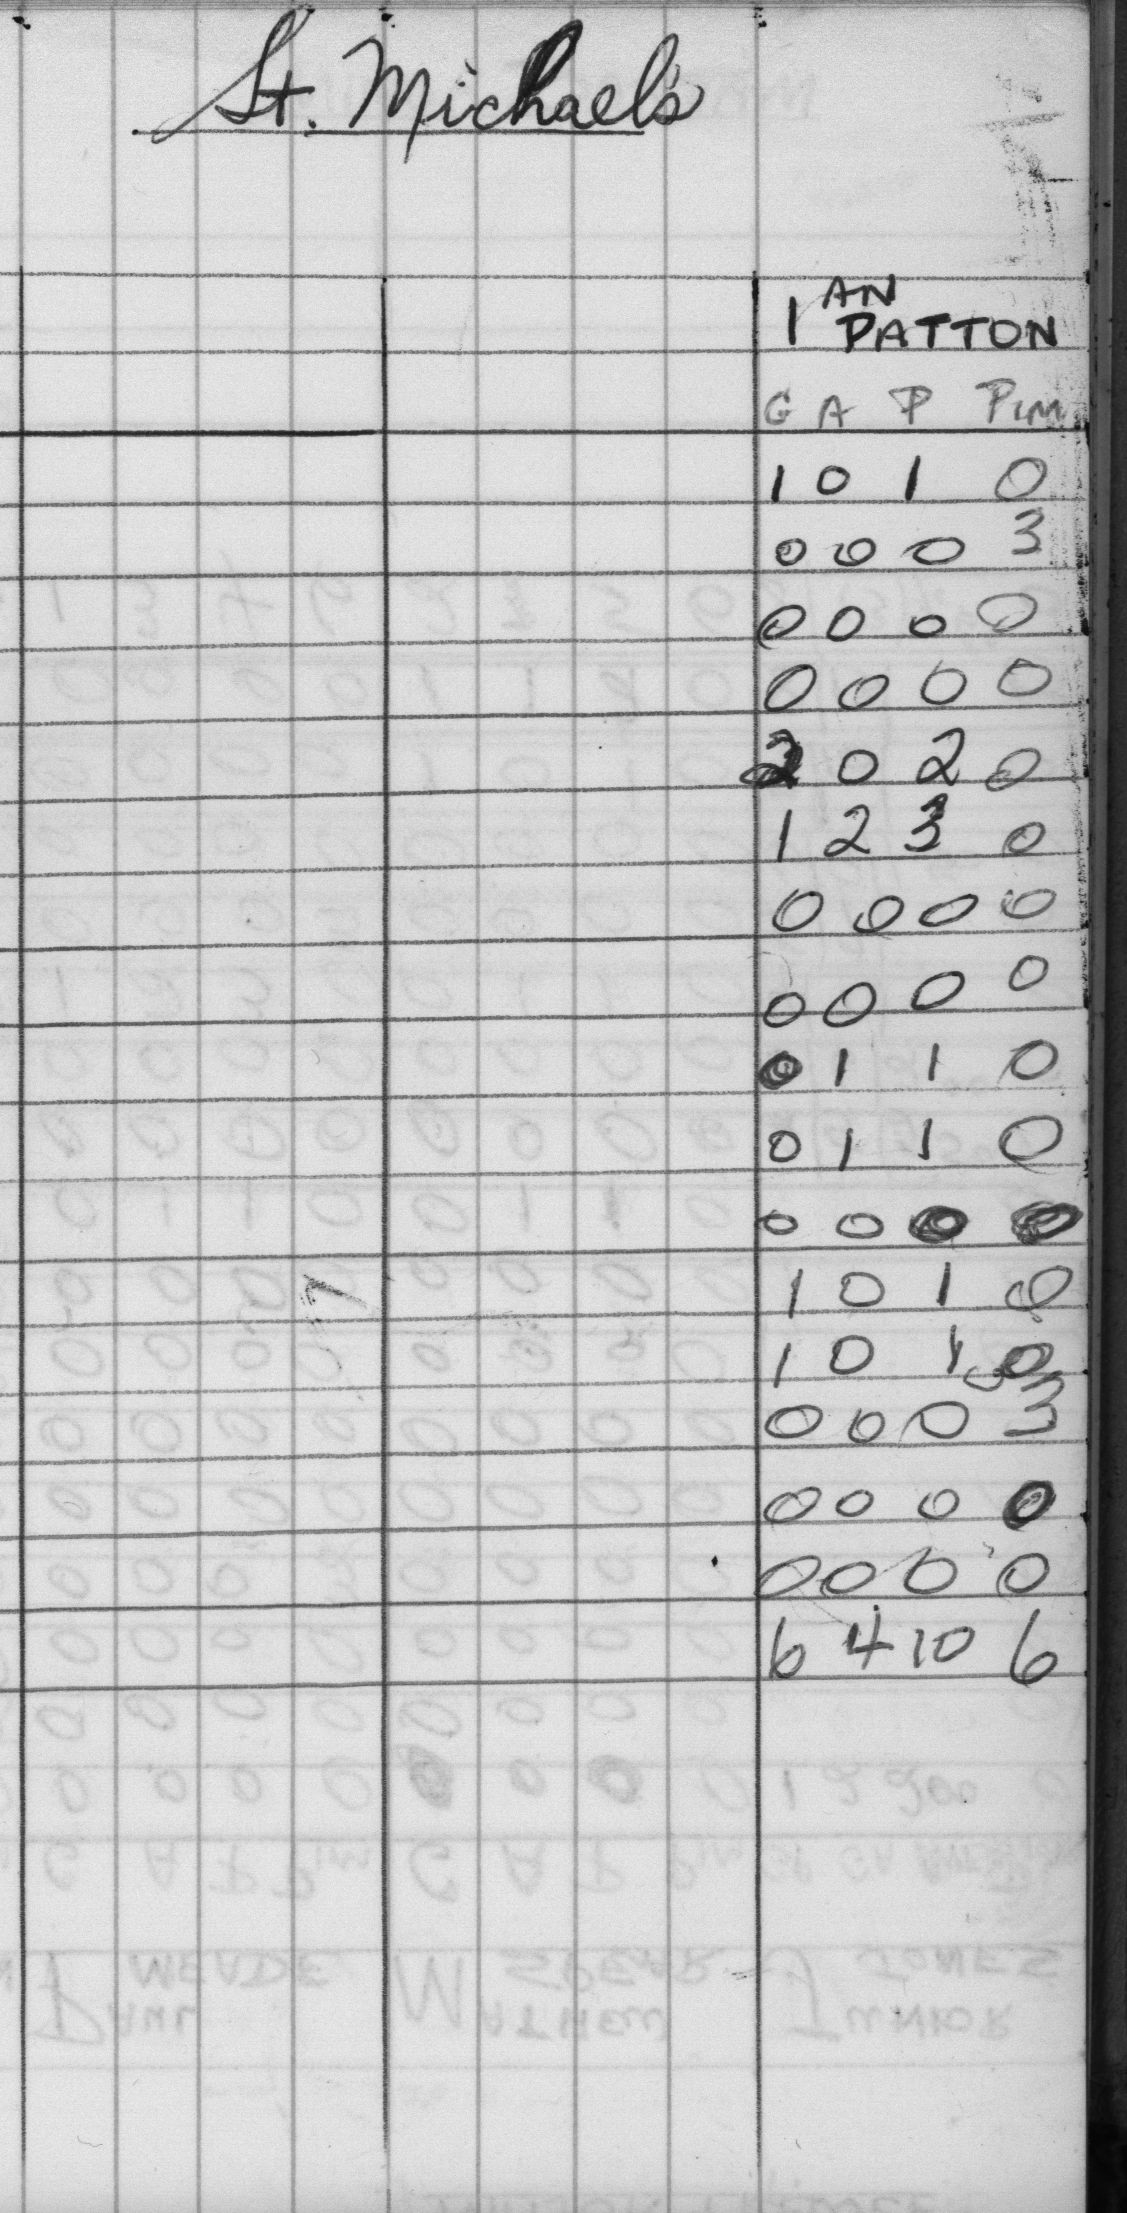 St. Michael's
IAN
PATTON
G A P PIM
1 0 1 0
0 0 0 3
0 0 0 0
0 0 0 0
2 0 2 0
1 2 3 0
0 0 0 0
0 0 0 0
0 1 1 0
0 1 1 0
0 0 0 0
1 0 1 0
1 0 1 0
0 0 0 3
0 0 0 0
0 0 0 0
6 4 10 6